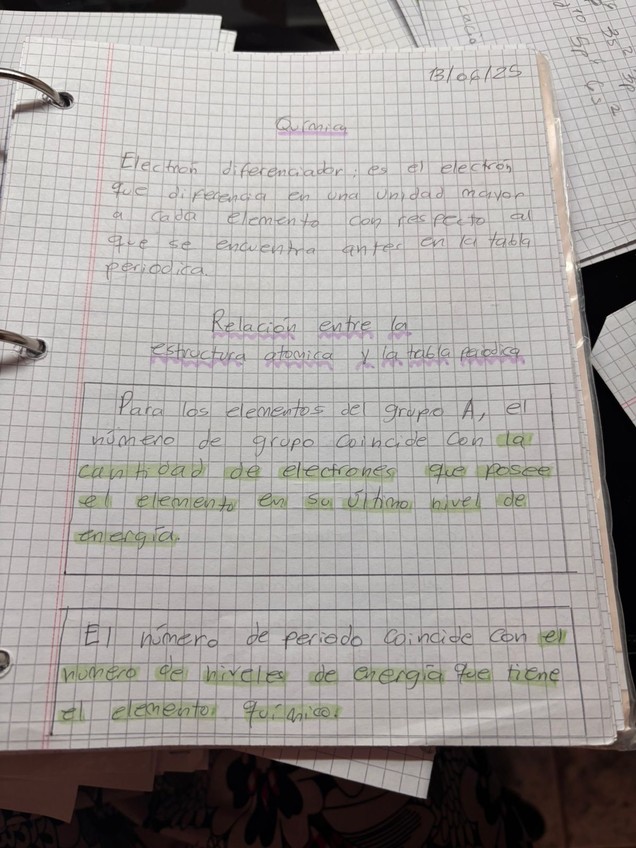 13/06/25
Química
Electrón diferenciador: es el electrón
que diferencia en una unidad mayor
a cada elemento con respecto al
que se encuentra antes en la tabla
periodica.
Relación entre la
estructura atomica y la tabla periodica
Para los elementos del grupo A, el
número de grupo coincide con la
cantidad de electrones que posee
el elemento en su último nivel de
energía.
El número de periodo coincide con el
número de niveles de energía que tiene
el elemento químico.